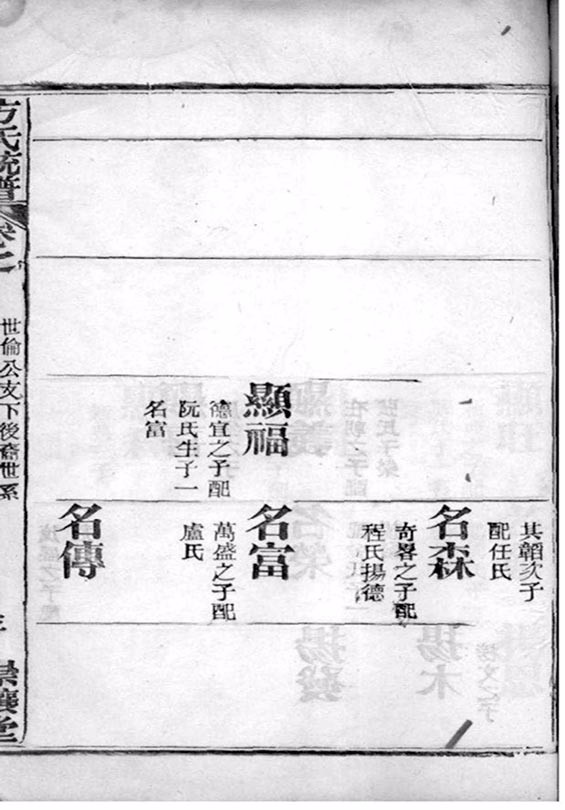 其韜次子
配任氏
名森
奇畧之子配
程氏揚德
顯福
德宜之子配
阮氏生子一
名富
名富
萬盛之子配
盧氏
名傳
方氏統譜
卷之
世倫公支下後裔世系
堂